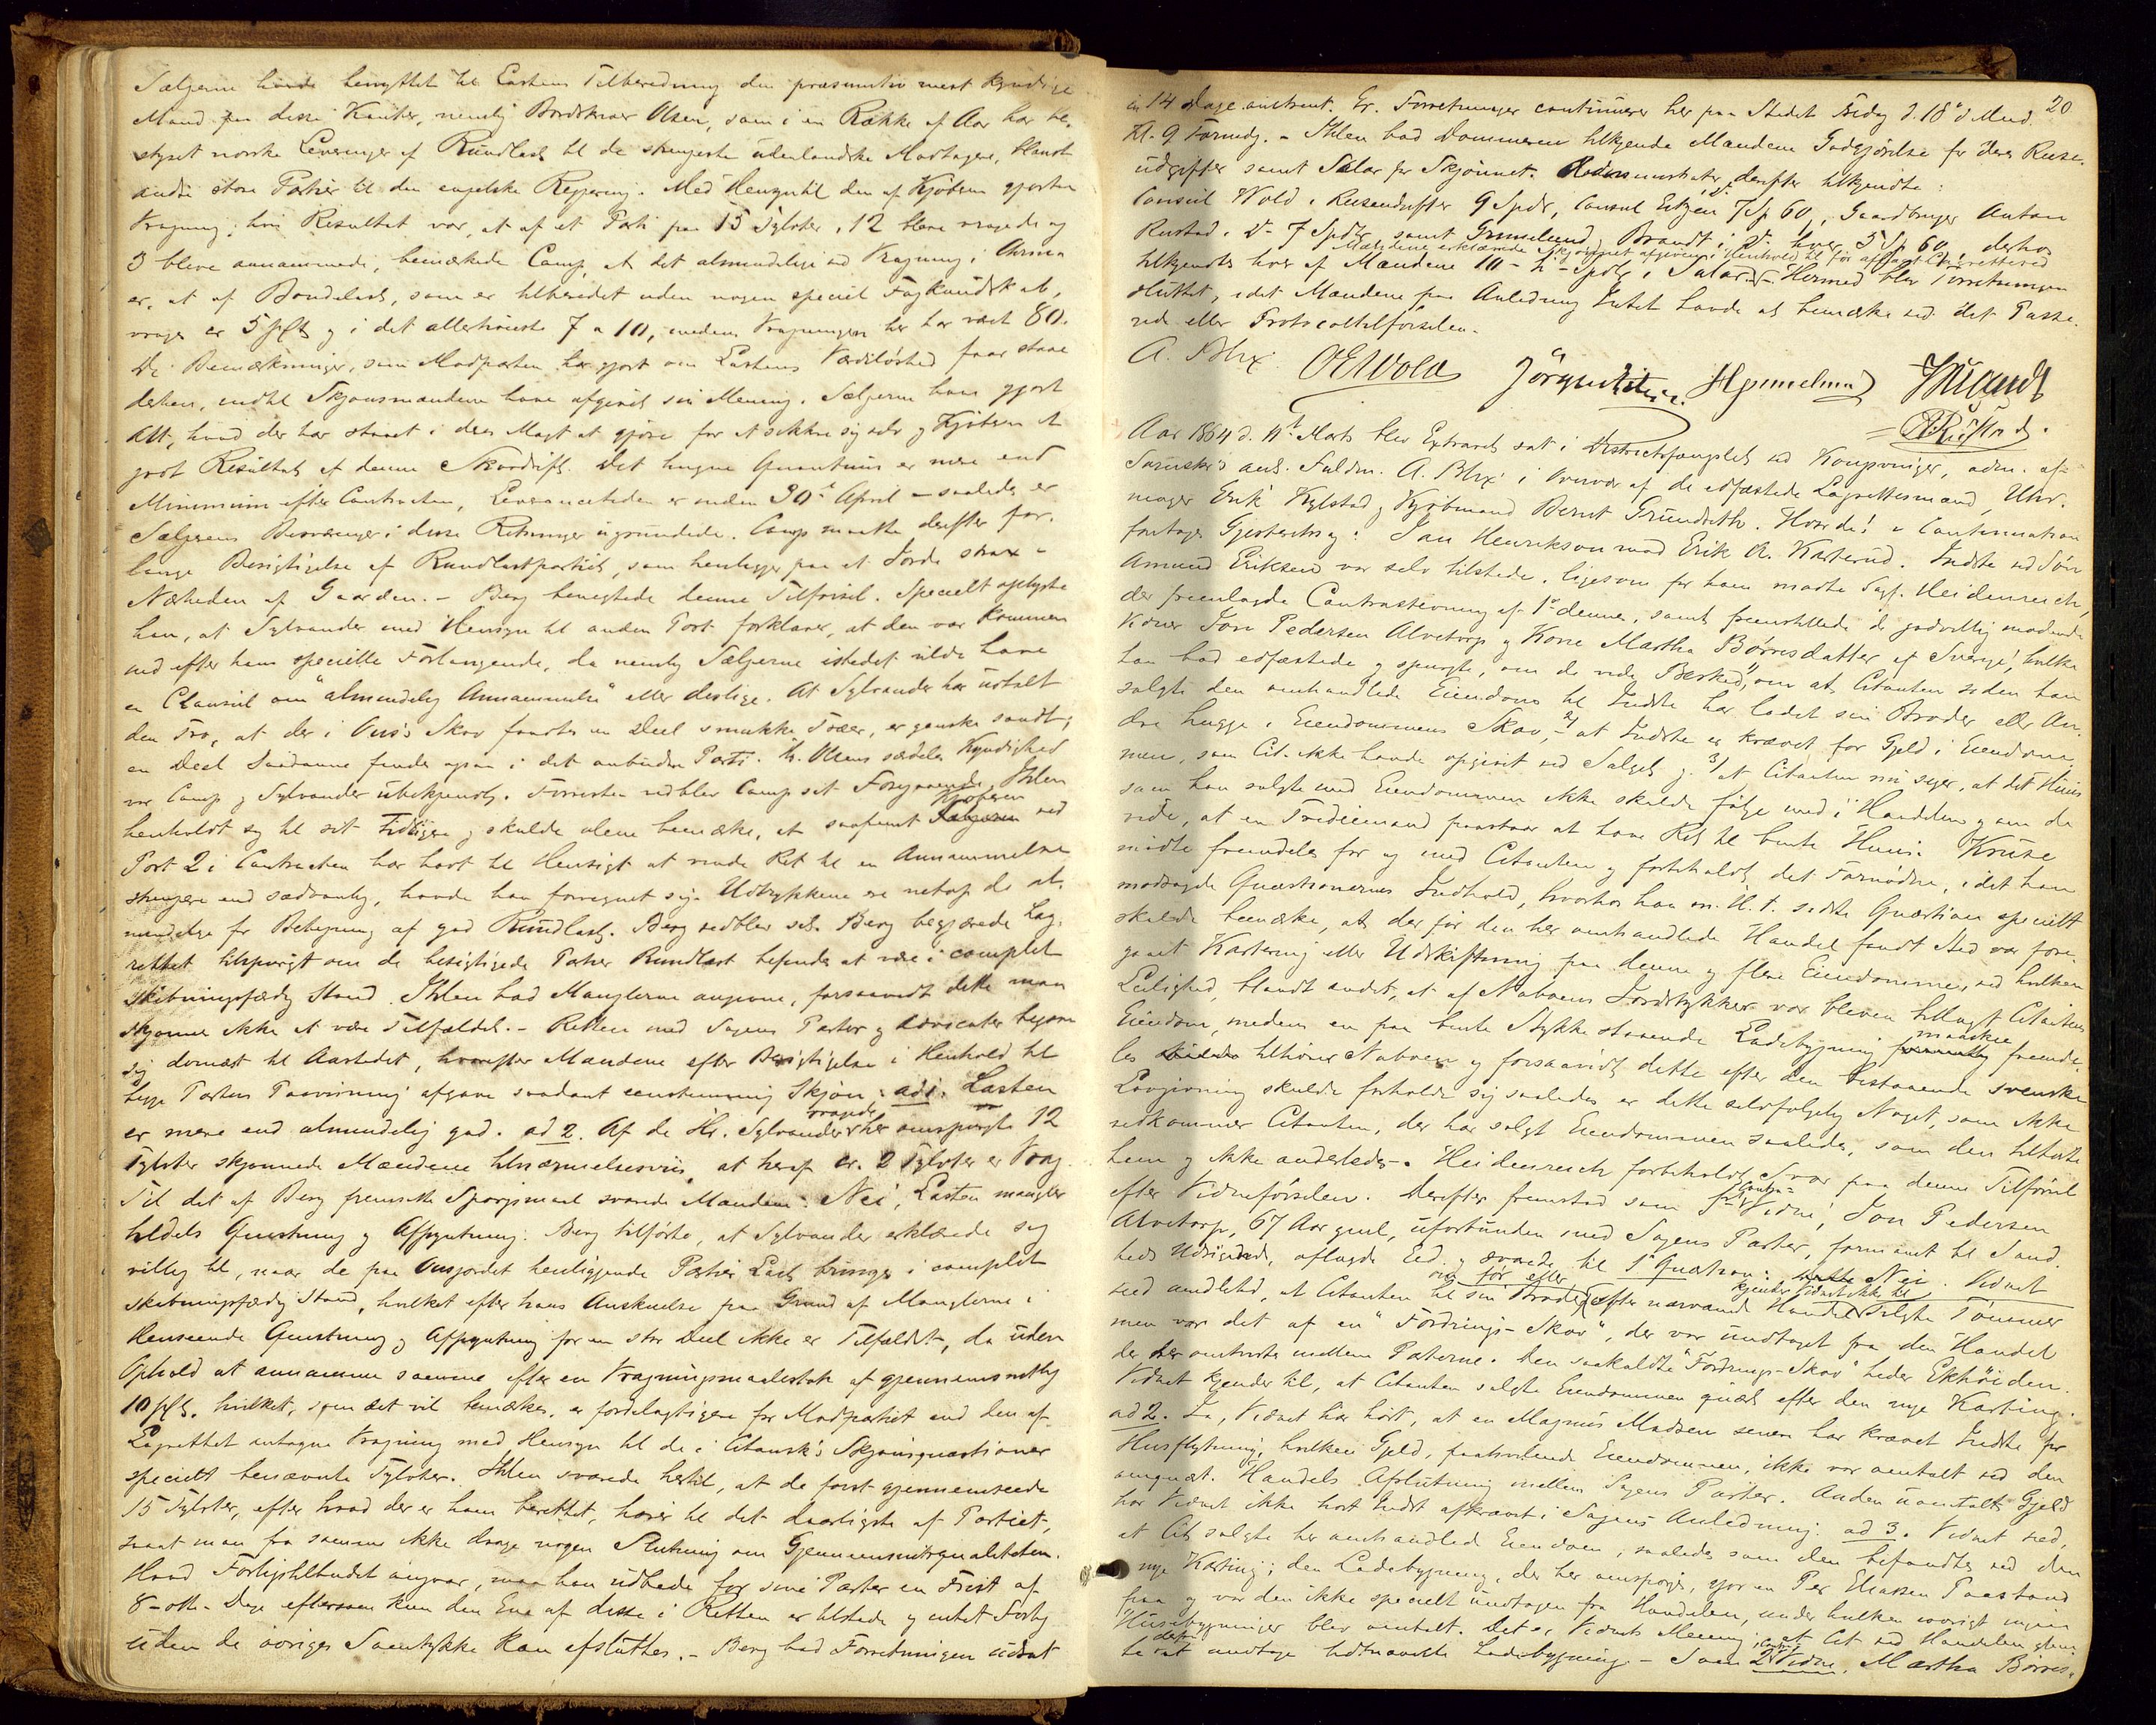 Sælgerne havde benyttet til Lastens Tilberedning den præsumtiv mest kyndige
Mand paa disse Kanter, nemlig Bordskraer Olsen, som i en Række af Aar har be-
styret norske Leveringer af Rundlast til de strengeste udenlandske Modtagere, blandt
andre store Partier til den engelske Regjering. Med Hensyn til den af Kjøberen gjorte
Vragning, hvis Resultat var, at af et Parti paa 15 Tylvter, 12 bleve vragede og
3 bleve annammede, bemærkede Camp, at det almindelige ved Vragning i
er, at af Bondelast, som er tilberedet uden nogen speciel Fagkundskab,
vrages er 5 pCt og i det allerhøieste 7 a 10, medens Vragningen her har været 80.
De Bemærkninger, som Modparten har gjort om Lastens Værdiløshed faar staae
derhen, indtil Skjønsmændene have afgivet sin Mening. Sælgerne have gjort
Alt, hvad der har staaet i deres Magt at gjøre for at sikkre sig selv og Kjøberen et
godt Resultat af denne Skovdrift. Det hugne Quantum er mere end
Minimum efter Contracten, Leverancetiden er inden 30te April – saaledes er
Sælgerens Besværinger i disse Retninger ugrundede. Camp maatte derefter for-
lange Besigtigelse af Rundlastpartiet, som henligger paa et Jorde strax i
Nærheden af Gaarden. – Berg benegtede denne Tilførsel. Specielt oplyste
han, at Sylvander med Hensyn til anden Post forklarer, at den var kommen
ind efter hans specielle Forlangende, da nemlig Sælgerne istedet vilde have
en Clausul om "almindelig Annammelse" eller deslige. At Sylvander har udtalt
den Tro, at der i Skov fandtes en Deel smukke Træer, er ganske sandt;
en Deel Saadanne findes ogsaa i det anbudne Parti. Hr. Olsens særdeles Kyndighed
var Camp og Sylvander ubekjendt. Forresten vedblev Camp sit Foregaaende. Ihlen
henholdt sig til sit Tidligere og skulde alene bemærke, at saafremt Kjøberen ved
Post 2 i Contracten har havt til Hensigt at vinde Ret til en Annammelse
strengere end sædvanlig, havde han forregnet sig. Udtrykkene ere netop de al-
mindelige for Betegning af god Rundlast. Berg vedblev sit. Berg begjærede Lag-
rettet tilspurgt om de besigtigede Partier Rundlast befindes at være i complet
skibningsfærdig Stand. Ihlen bad Manglerne angivne, forsaavidt dette man
skjønner ikke at være Tilfældet. – Retten med Sagens Parter og Advocater begave
sig dernæst til Aastedet, hvorefter Mændene efter Besigtigelse i Henhold til
begge Parters Paavisning afgave saadant eenstemmig Skjøn: ad 1. Lasten
er mere end almindelig god. ad 2. Af de Hr. Sylvander vragede her omspurgte 12
Tylvter skjønnede Mændene tilnærmelsesviis, at heraf cr. 2 Tylvter er Vrag.
Til det af Berg fremsatte Spørgsmaal svarede Mændene: Nei, Lasten mangler
tildels Qvistning og Afpyntning. Berg tilførte, at Sylvander erklærede sig
villig til, naar de paa henliggende Partier Last bringes i complet
skibningsfærdig Stand, hvilket efter hans Anskuelse paa Grund af Manglerne i
Henseende Qvistning og Afpyntning for en stor Deel ikke er Tilfældet, da uden
Ophold at annamme samme efter en Vragningsmaalestok af gjennemsnitlig
10 pCt. hvilket, som det vil bemærkes, er fordelagtigere for Modpartiet end den af
Lagrettet antagne Vragning med Hensyn til de i Citantsk's Skjønsquæstioner
specielt benævnte Tylvter. Ihlen svarede hertil, at de først gjennemseede
15 Tylvter, efter hvad der er ham berettet, hører til det daarligste af Partiet,
saa at man fra samme ikke drage nogen Slutning om Gjennemsnitsqualiteten.
Hvad Forligstilbudet angaar, maa han udbede for sine Parter en Frist af
8–otte– Dage eftersom kun den Ene af disse i Retten er tilstede og intet Forlig
uden de øvriges Samtykke kan afsluttes. – Berg bad Forretningen udsat
20
in 14 Dage Forretningen continuerer her paa Stedet Fredag d. 18de d Mnd
Kl. 9 Formdg. – Ihlen bad Dommeren tilkjende Mændene Godtgjørelse for deres Reise-
udgifter samt Salær for Skjønnet. derefter tilkjendte:
Consul Wold i Reiseudgifter 9 Spdr, Consul 7 Sp 60, Gaardbruger Anton
Rustad i do 7 Spdlr samt Grimelund Brandt i do hver 5 Sp 60 derhos
Mændene erklærede Skjønnet afgiven i Henhold til før aflagt
tilkjendtes hver af Mændene 10 – ti – Spdlr i Salær. – Hermed blev Forretningen
sluttet, idet Mændene paa Anledning Intet havde at bemærke ved det Passe-
rede eller Protocoltilførselen.
A. Blix OEWold Jörgen HGrimelund
Aar 1864 d. 11te Marts blev Extraret sat i Districtsfængslet ved Kongsvinger, adm. af
Sorenskr's aut. Fuldm. A. Blix i Overvær af de edfæstede Lagrettesmænd, Uhr-
mager Erik Kylstad og Kjøbmand Bernt Grundseth. Hvorda! i Continuation
foretages Gjesteretssag: Jan Henrikson mod Erik A. Karterud. Indste ved Søn
Amund Eriksen var selv tilstede, ligesom for ham mødte Sagf. Heidenreich,
der fremlagde Contrastevning af 1ste dennes, samt fremstillede de godvillig mødende
Vidner Jon Pedersen Alvetorp og Kone Martha Børresdatter af Sverige, hvilke
han bad edfæstede og spurgte, om de vide Besked, 1/ om at, Citanten siden han
solgte den omhandlede Eiendom til Indste har ladet sin Broder eller An-
dre hugge i Eiendommens Skov, 2/ at Indste er krævet for Gjeld i Eiendom-
men, som Cit. ikke havde opgivet ved Salget, og 3/ at Citanten nu siger, at det Huus
som han solgte med Eiendommen ikke skulde følge med i Handelen og om de
vide, at en Trediemand paastaar at have Ret til bemte Huus. Kruse
mødte fremdeles for og med Citanten og forbeholdt det Fornødne, idet han
modsagde Quæstionernes Indhold, hvorhos han m. H. t. sidste Quæstion specielt
skulde bemærke, at der før den her omhandlede Handel fandt Sted var fore-
gaaet Kartering eller Udskiftning paa denne og flere Eiendomme, ved hvilken
Leilighed, blandt andet, at af Naboens Jordstykker var bleven tillagt Citantens
Eiendom, medens en paa bemte Stykke staaende Ladebygning maaskee fremde-
les tilhører Naboen og forsaavidt dette efter den bestaaende svenske
Lovgivning skulde forholde sig saaledes er dette selvfølgelig Noget, som ikke
vedkommer Citanten, der har solgt Eiendommen saaledes, som den tilhørte
ham og ikke anderledes. Heidenreich forbeholdt Svar paa denne Tilførsel
efter Vidneførselen. Derefter fremstod som 1ste Contra- Vidne, Jon Pedersen
Alvetorp, 67 Aar gml, uforbunden med Sagens Parter, formant til Sand-
heds Udsigende, aflagde Eed og svarede til 1ste Quæstion: Nei. Vidnet
veed imidlertid, at Citanten til sin Broder om før eller efter nærværende Handel kjender Vidnet ikke til solgte Tømmer
men var det af en "Fordrings-Skov", der var undtaget fra den Handel
der her omtvistes mellem Parterne. Den saakaldte "Fordrings-Skov" heder Ekhöiden.
Vidnet kjender til, at Citanten solgte Eiendommen quæst. efter den nye Karting.
ad 2. Ja, Vidnet har hørt, at en Magnus Madsen senere har krævet Indste for
Husflytning, hvilken Gjeld, paahvilende Eiendommen, ikke var omtalt ved den
omquæst. Handels Afslutning mellem Sagens Parter. Anden uomtalt Gjeld
har Vidnet ikke hørt Indst afkrævet i Sagens Anledning. ad 3. Vidnet ved,
at Cit. solgte her omhandlede Eiendom, saaledes som den befandtes ved den
nye Karting; den Ladebygning, der her omspørges, gjør en Per Eliassen Paastand
paa og var den ikke specielt undtagen fra Handelen, under hvilken iøvrigt ingen
Husebygninger blev omtalt. Det er Vidnets Mening, at Cit ved Handelen glem-
te det at undtage bemte Ladebygning. – Som 2det Contra Vidne, Martha Børres-